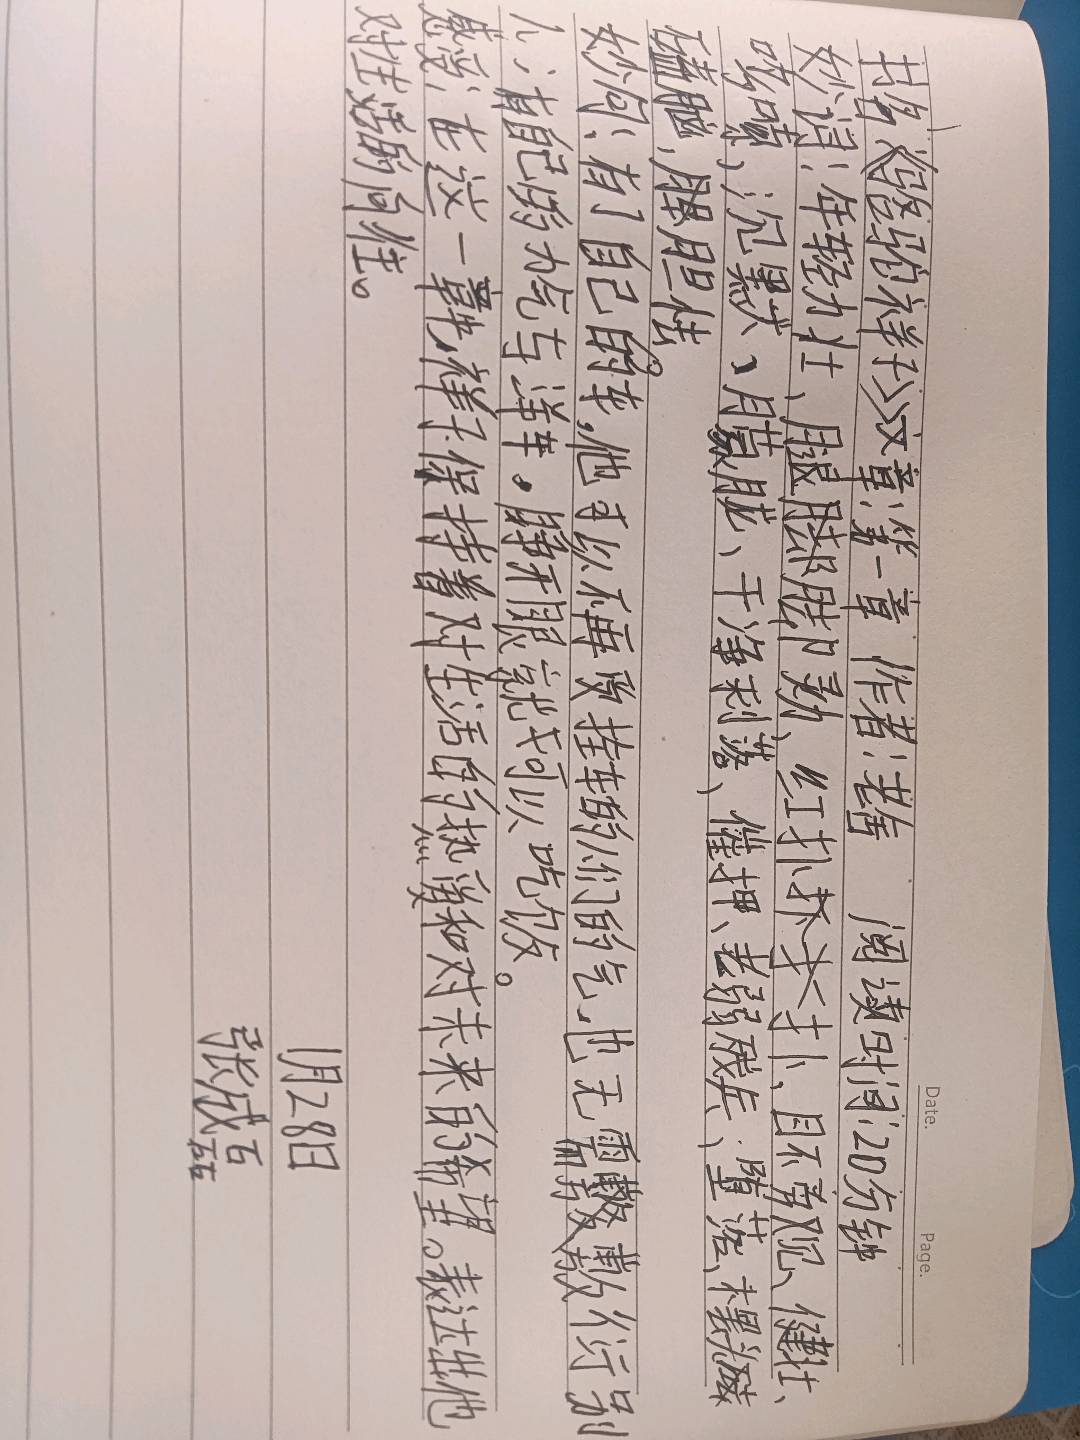 Date. Page.
书名:《骆驼祥子》文章:第一章 作者:老舍 阅读时间:20分钟
妙词:年轻力壮、腿脚勤、红扑扑、目不、健壮、
咯嗦、沉默、朦胧、干净利落、催押、老弱残兵、堕落、
磕脑,服胆怯。
妙句:有了自己的车,他可以不再受拴车的人们的气,也无需敷衍别
人;有自己的力气与洋车。睁开眼就可以吃饭。
感受:在这一章,祥子保持着对生活的热爱和对未来的希望。表达出他
对生活的向往。
1月28日
张成磊